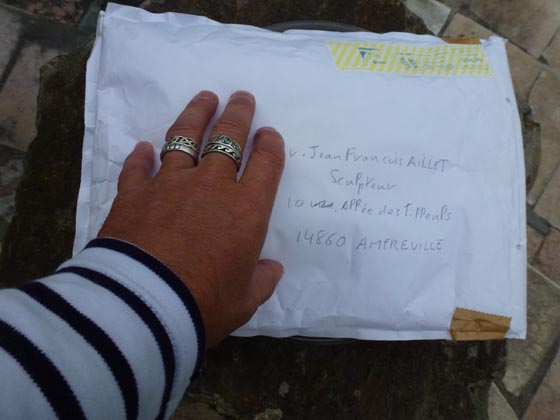 r. Jean Francois AILLET
Sculpteur
10 Allée des tilleuls
14860 AMFREVILLE